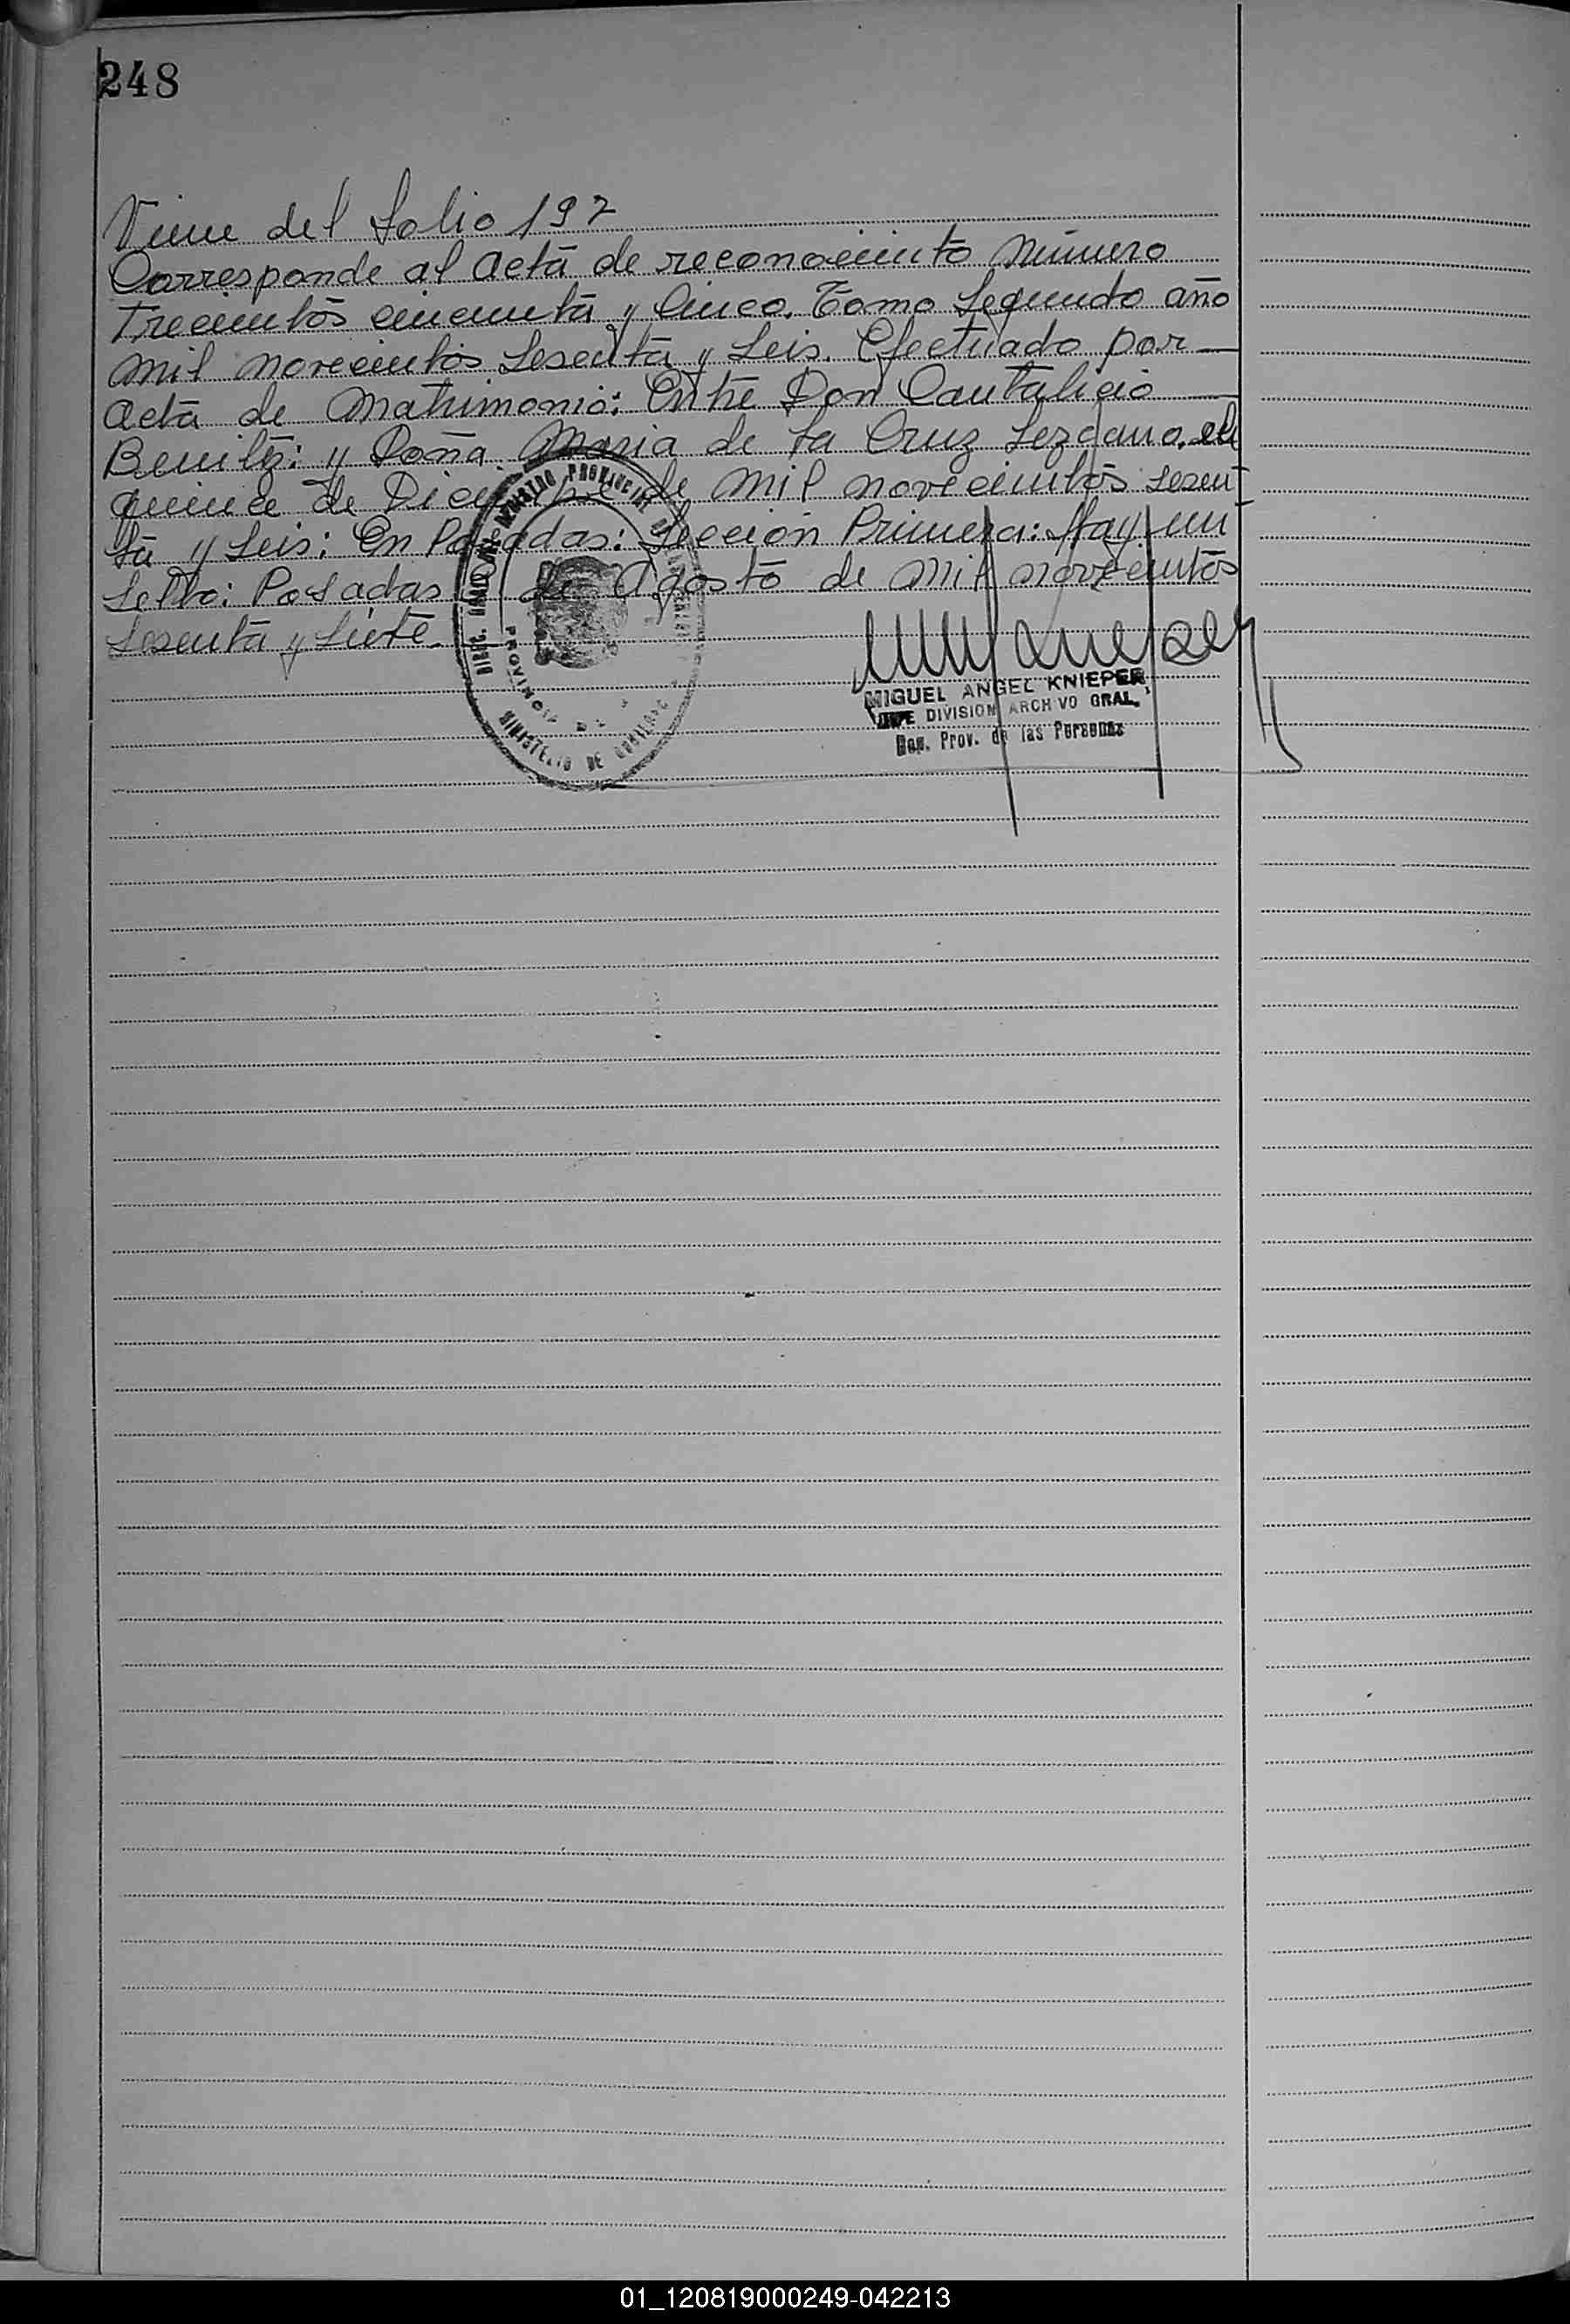 248
Viene del folio 197
Corresponde al acta de reconocimiento número
trecientos cincuenta y Cinco. Tomo Segundo año
mil novecientos Sesenta y Seis. Efectuado por
acta de Matrimonio: Entre Don Cantalicio
Benitez: y Doña Maria de la Cruz Lezcano. el
quince de Diciembre de mil novecientos sesen-
ta y Seis: En Posadas: Sección Primera: Hay un
Sello: Posadas de Agosto de mil novecientos
Sesenta y Siete.
MIGUEL ANGEL KNIEPER
JEFE DIVISION ARCHIVO GRAL.
Prov. de las Personas
REGISTRO PROVINCIAL
PROVINCIA DE
MINISTERIO DE GOBIERNO
01_120819000249-042213